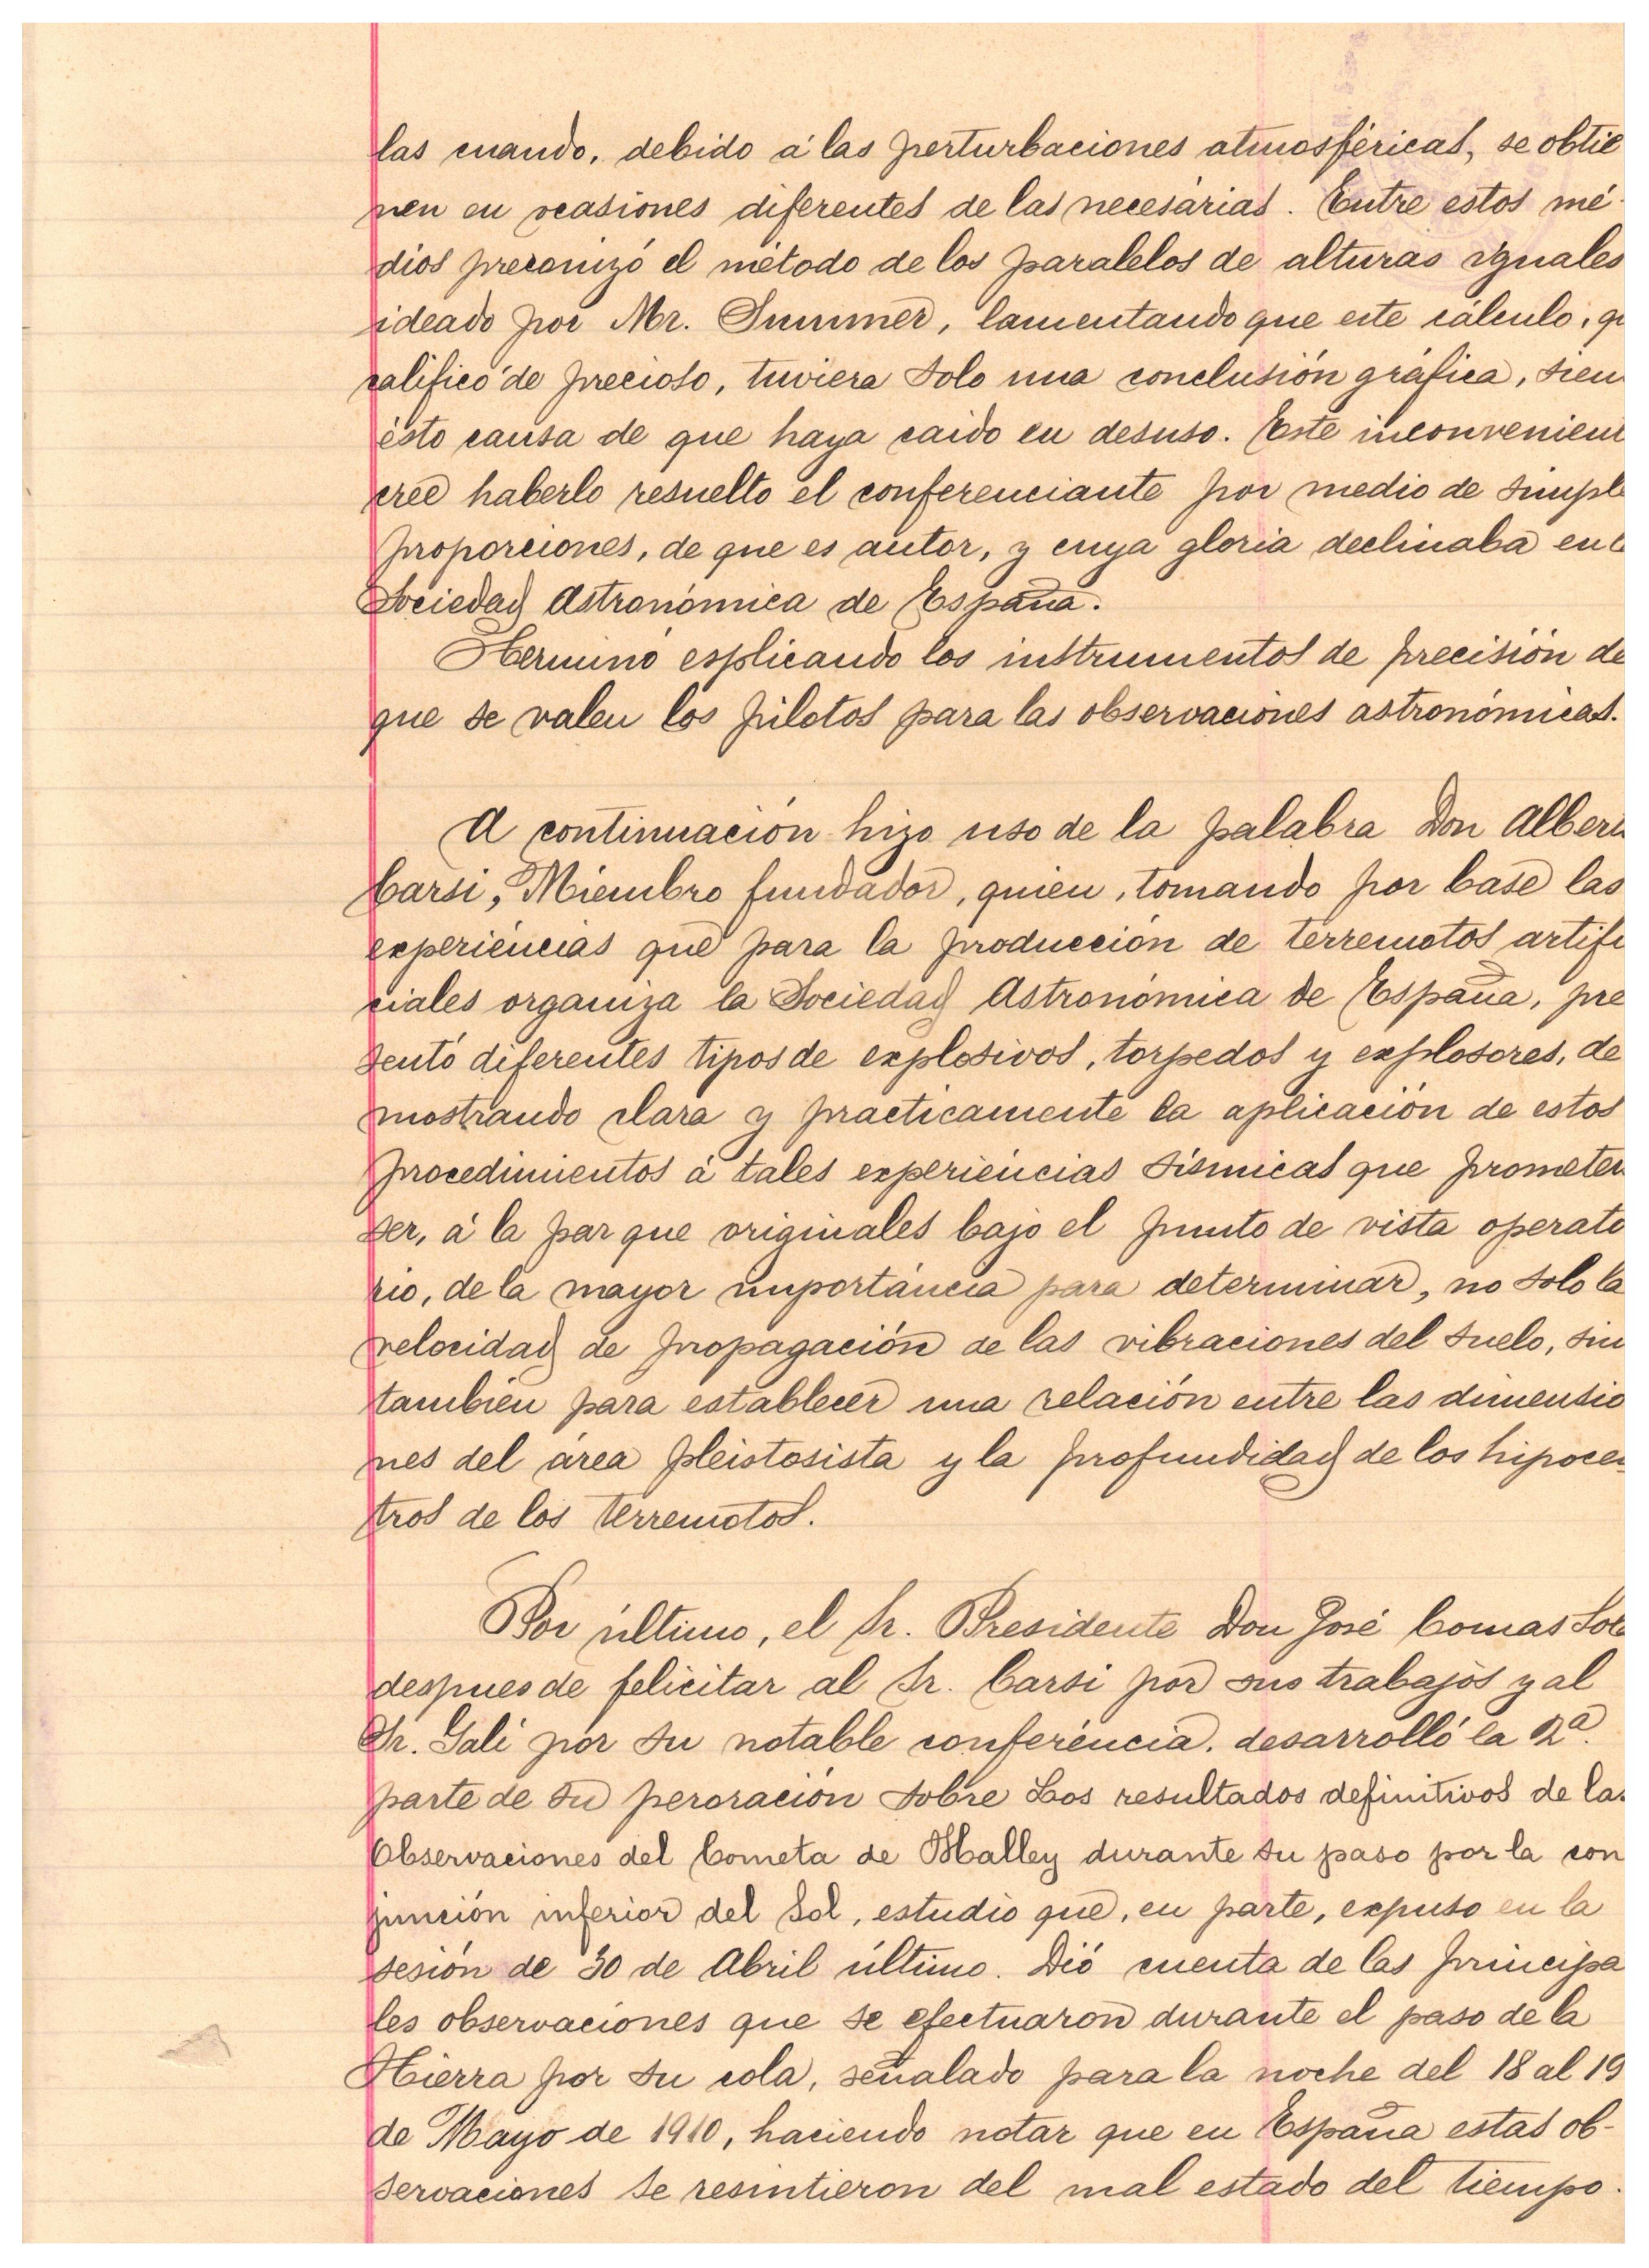 las cuando, debido á las perturbaciones atmosféricas, se obtie
nen en ocasiones diferentes de las necesárias. Entre estos mé-
dios preconizó el método de los paralelos de alturas yguales
ideado por Mr. Summer, lamentando que este cálculo, q
calificó de precioso, tuviera solo una conclusión gráfica, sien
ésto causa de que haya caido en desuso. Este inconvenient
cree haberlo resuelto el conferenciante por medio de simple
proporciones, de que es autor, y cuya gloria declinaba en l
Sociedad Astronómica de España.
Terminó esplicando los instrumentos de precisión de
que se valen los pilotos para las observaciones astronómicas.
A continuación hizo uso de la palabra Don Albert
Carsi, Miembro fundador, quien, tomando por base las
experiéncias que para la producción de terremotos artifi
ciales organiza la Sociedad Astronómica de España, pre
sentó diferentes tipos de explosivos, torpedos y explosores, de
mostrando clara y practicamente la aplicación de estos
procedimientos á tales experiéncias sísmicas que prometen
ser, á la par que originales bajo el punto de vista operato
rio, de la mayor importáncia para determinar, no solo la
velocidad de propagación de las vibraciones del suelo, sin
también para establecer una relación entre las dimensio
nes del área pleistosista y la profundidad de los hipocen
tros de los terremotos.
Por último, el Sr. Presidente Don José Comas Solá
despues de felicitar al Sr. Carsi por sus trabajos y al
Sr. Galí por su notable conferéncia, desarrolló la 2ª.
parte de su peroración sobre Los resultados definitivos de las
Observaciones del Cometa de Halley durante su paso por la con
junción inferior del Sol, estudio que, en parte, expuso en la
sesión de 30 de Abril último. Dió cuenta de las principa
les observaciones que se efectuaron durante el paso de la
Tierra por su cola, señalado para la noche del 18 al 19
de Mayo de 1910, haciendo notar que en España estas ob-
servaciones se resintieron del mal estado del tiempo.